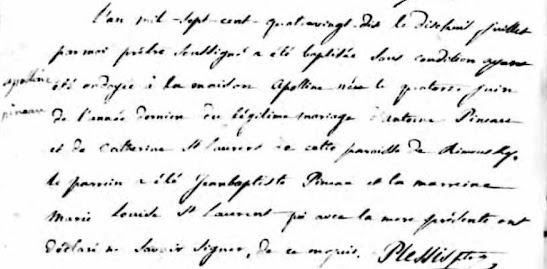 L'an mil sept cent quatrevingt dix le dixhuit juillet
par moi prêtre soussigné a été baptisée sous condition ayant
apolline
pineau
été ondoyée à la maison Apolline née le quatorze juin
de l'année derniere du légitime mariage d'antoine Pineau
et de Catherine St Laurent de cette paroisse de Rimousky.
le parrein a été Jean baptiste Pineau et la marreine
Marie Louise St Laurent qui avec la mere présente ont
déclaré ne savoir signer, de ce requis. Plessis ptre